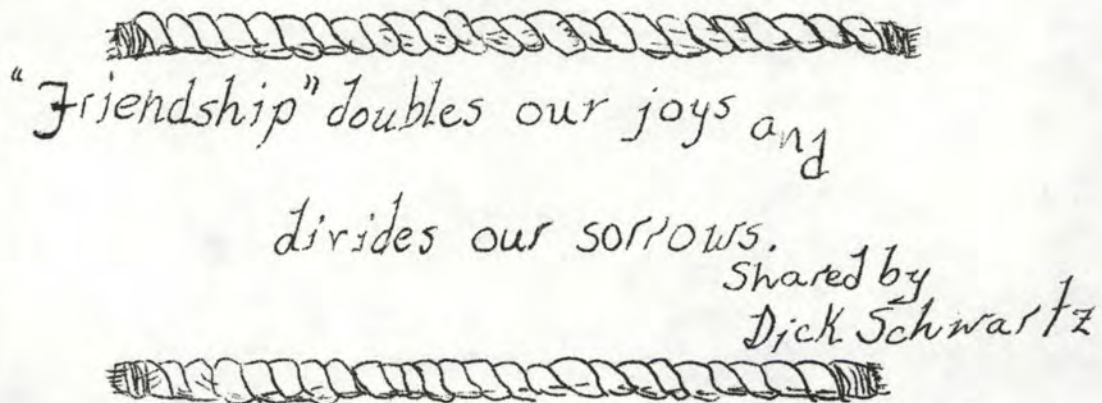 "Friendship" doubles our joys and
divides our sorrows.
Shared by
Dick Schwartz